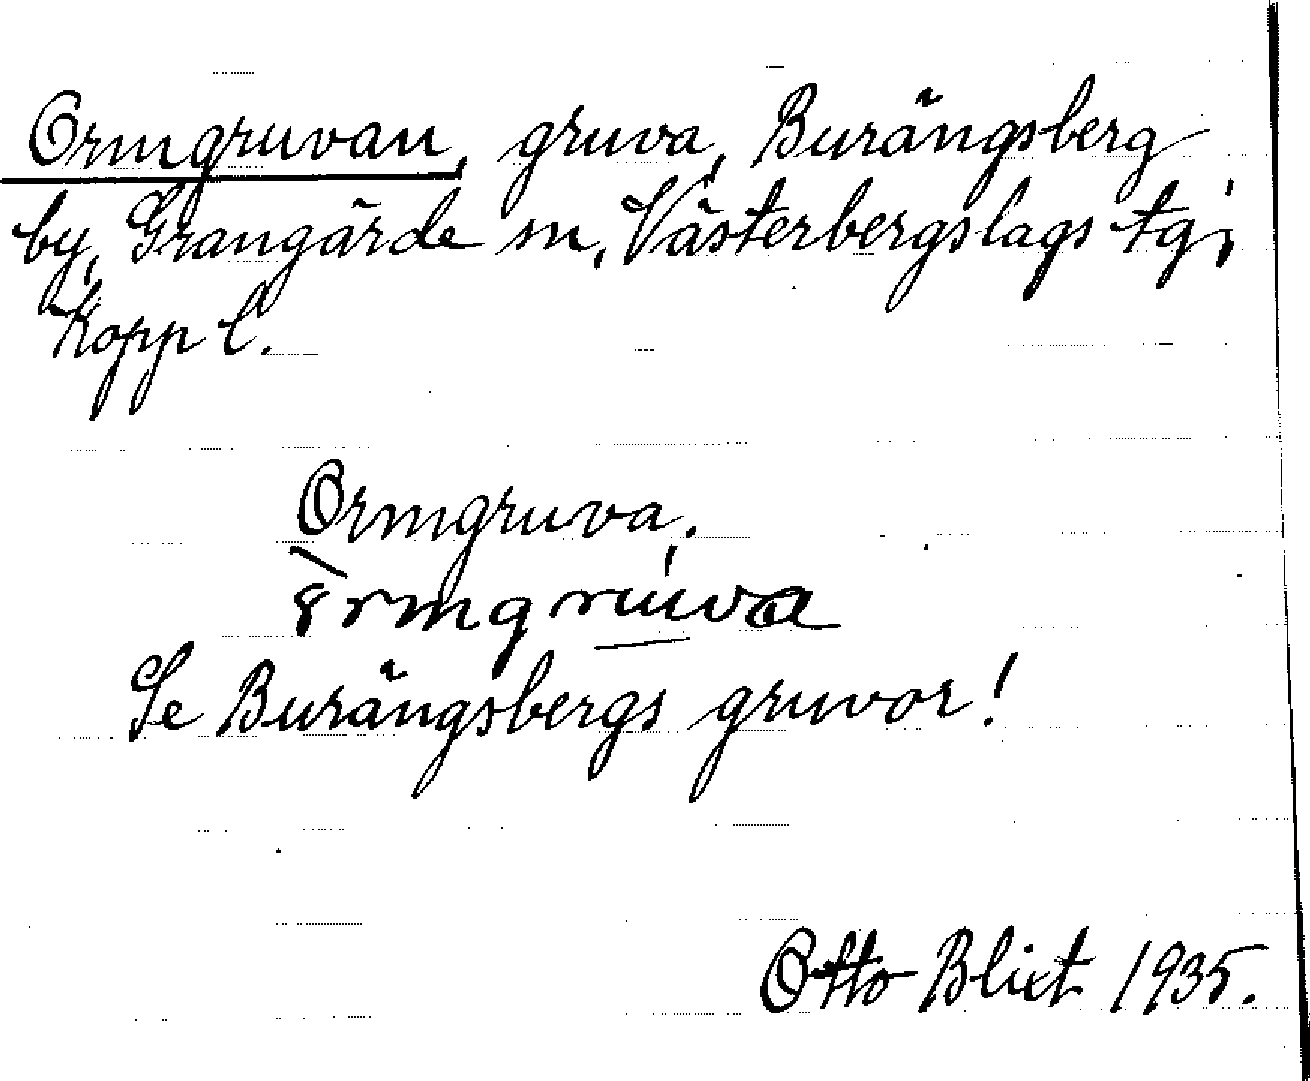 Ormgruvan, gruva, Burängsberg
by, Grangärde sn, Västerbergslags tg,
Kopp l.
Ormgruva.
Se Burängsbergs gruvor!
Otto Blixt 1935.